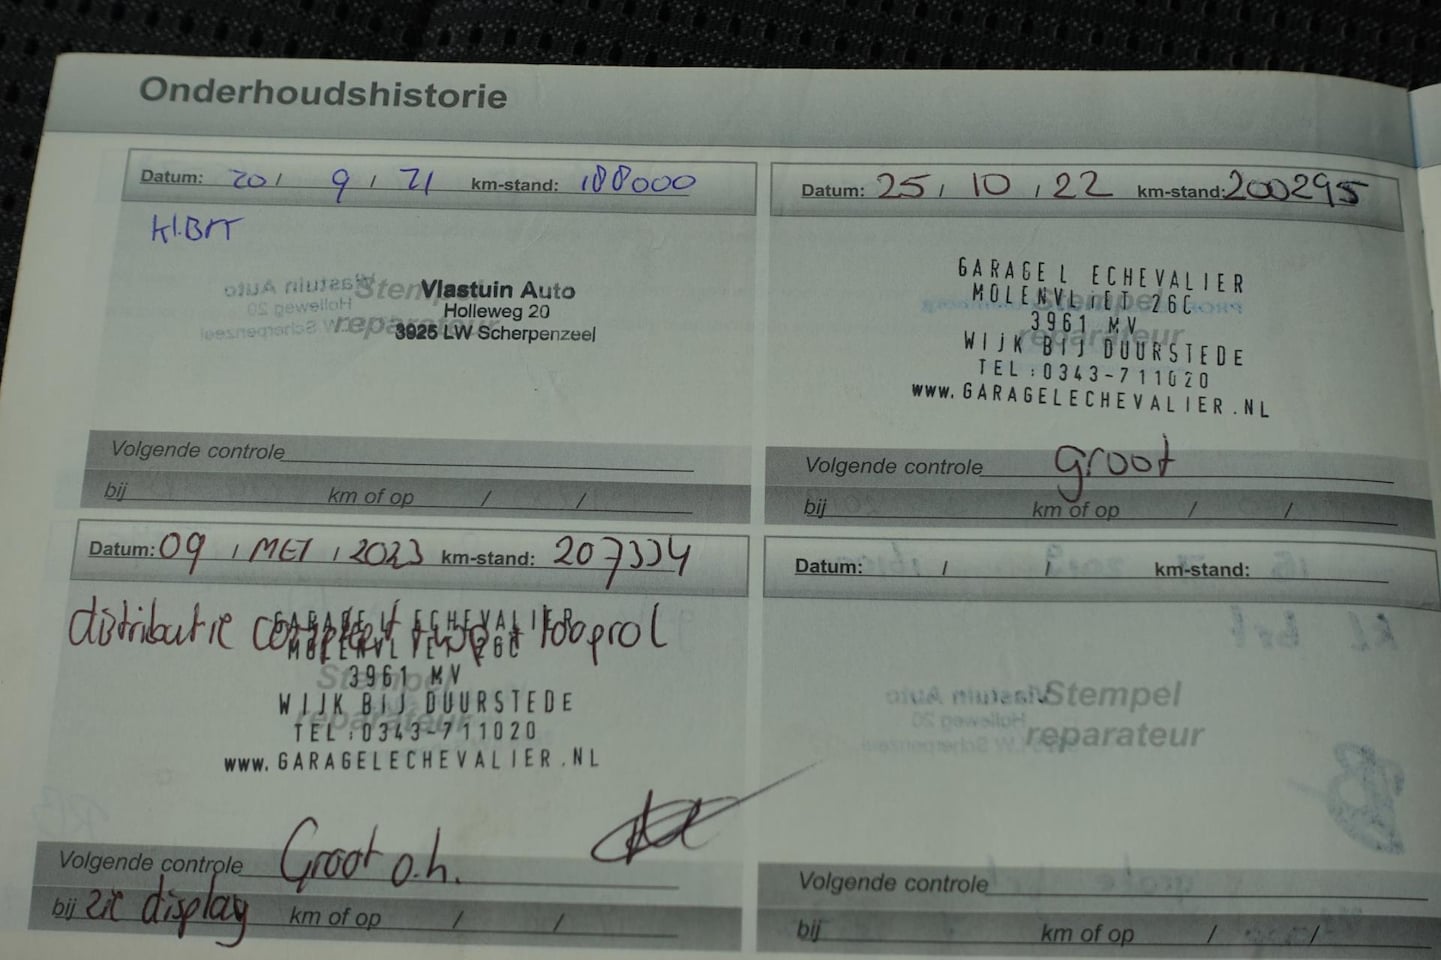 Onderhoudshistorie
Datum: 20 / 9 / 21 km-stand: 188000
kl.BRT
Stempel
reparateur
Vlastuin Auto
Holleweg 20
3925 LW Scherpenzeel
Volgende controle
bij km of op / /
Datum: 25 / 10 / 22 km-stand: 200295
GARAGE L ECHEVALIER
MOLENVLIET 26C
3961 MV
WIJK BIJ DUURSTEDE
TEL:0343-711020
www.GARAGELECHEVALIER.NL
Stempel
reparateur
Volgende controle groot
bij km of op / /
Datum: 09 / MEI / 2023 km-stand: 207334
distributie compleet
GARAGE L ECHEVALIER
MOLENVLIET 26C
3961 MV
WIJK BIJ DUURSTEDE
TEL:0343-711020
www.GARAGELECHEVALIER.NL
Stempel
reparateur
Volgende controle Groot o.h.
bij zie display km of op / /
Datum: / / km-stand:
Stempel
reparateur
Volgende controle
bij km of op / /